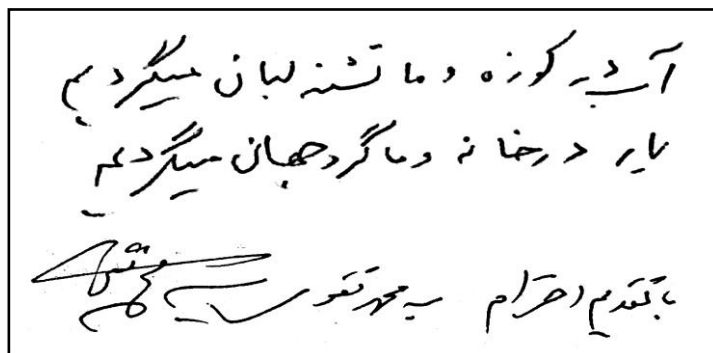 آب در کوزه و ما تشنه لبان میگردیم
یار در خانه و ما گرد جهان میگردیم
با تقدیم احترام سید محمد تقی